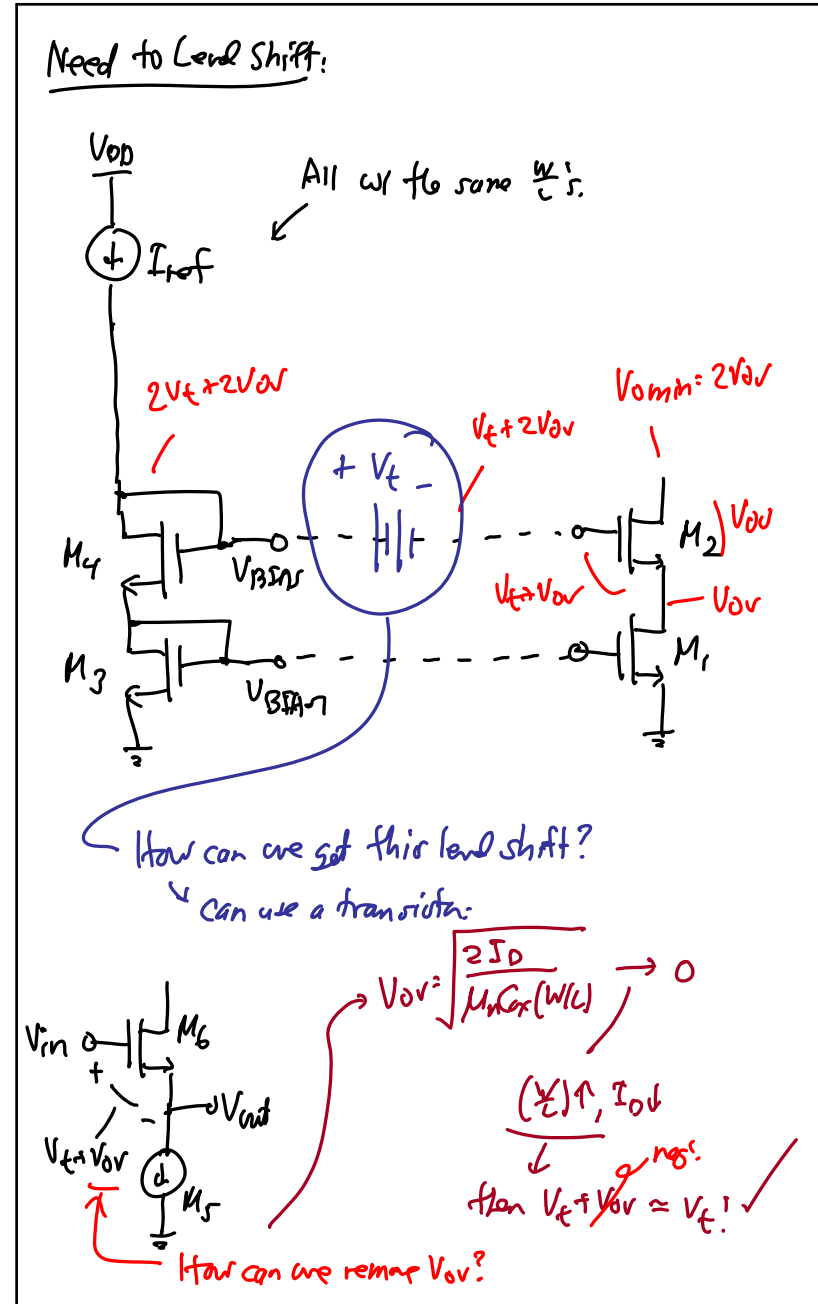 Need to Level Shift:
VDD
All w/ the same W/L's.
Iref
2Vt+2Vov
Vomin=2Vov
Vt+2Vov
+ Vt -
M4
VBIAS
M2
Vov
Vt+Vov
Vov
M3
VBIAS1
M1
How can we get this level shift?
↳ can use a transistor.
Vov = √(2ID / μnCox(W/L)) → 0
Vin
M6
+
-
Vout
(W/L)↑, ID↓
Vt+Vov
M5
neg!
then Vt+Vov ≈ Vt! ✓
How can we remove Vov?